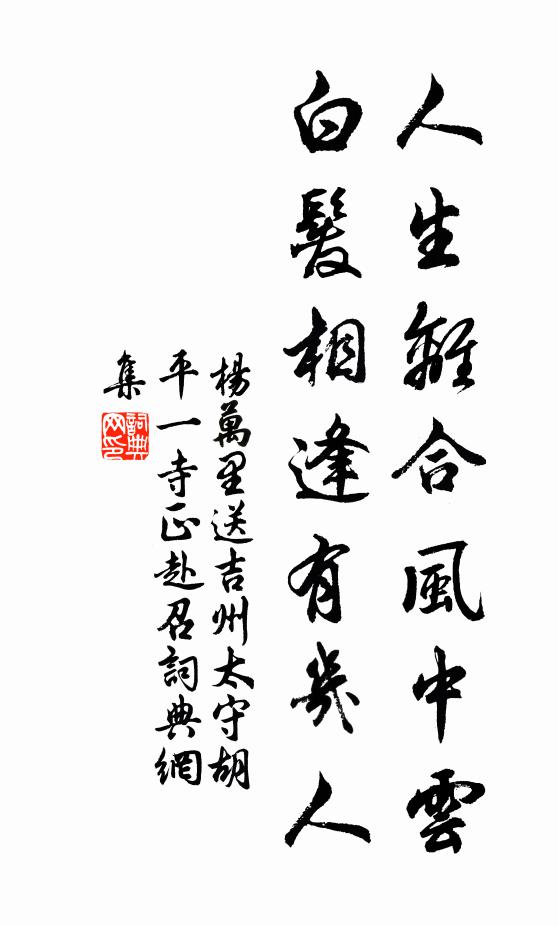 人生離合風中雲
白髮相逢有幾人
楊萬里送吉州太守胡
平一寺正赴召詞典網
集
詞典
网印